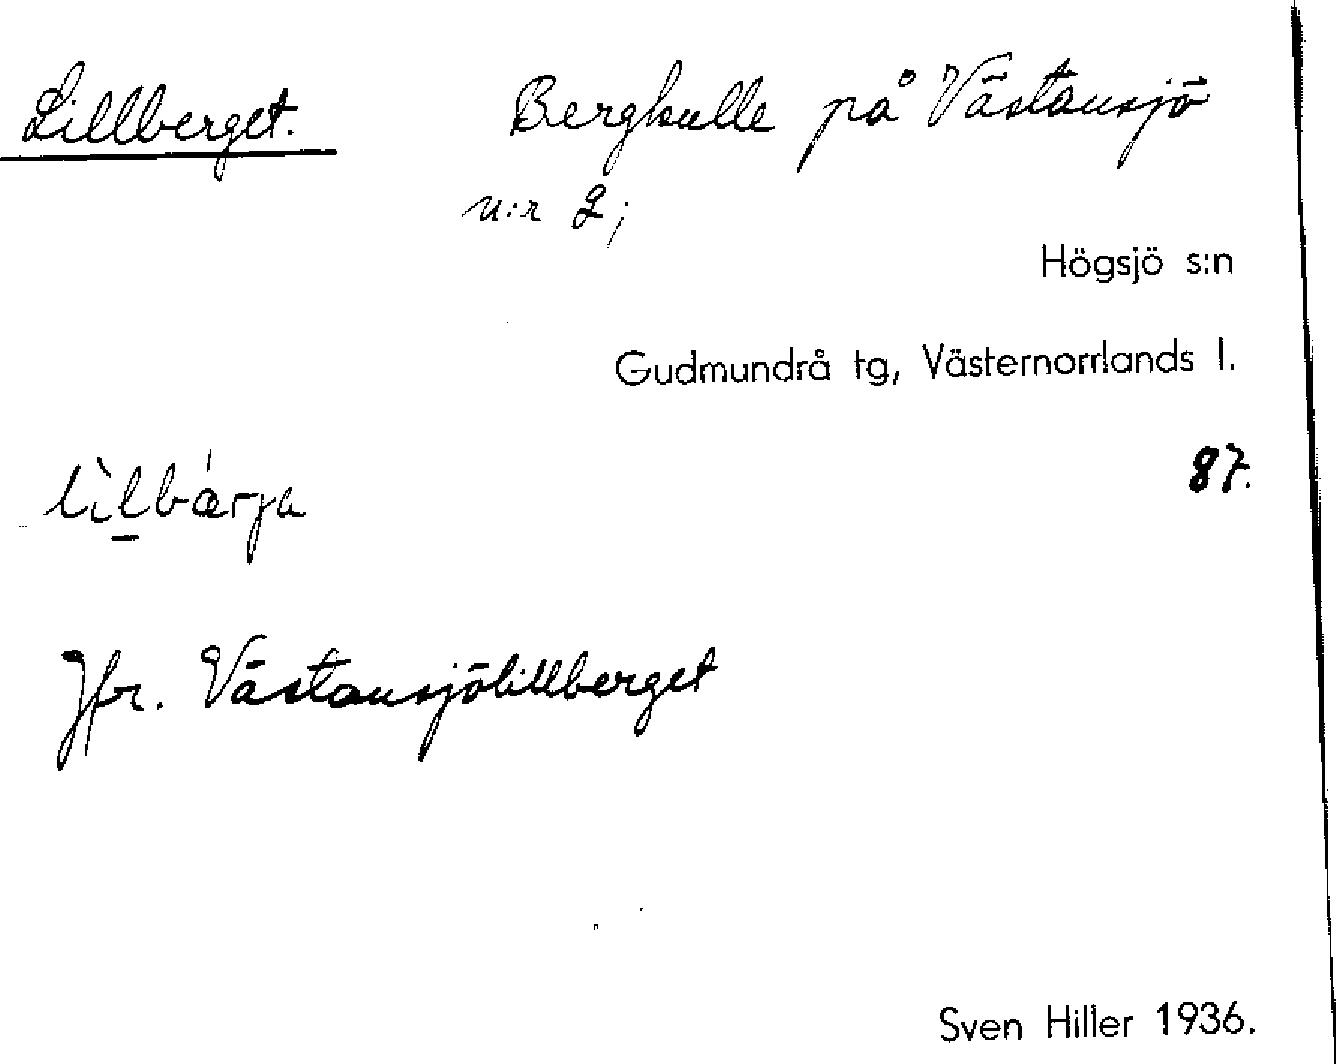 Lillberget. Bergkulle på Västansjö
n:r 2;
Högsjö s:n
Gudmundrå tg, Västernorrlands l.
87.
Jfr. Västansjölillberget
Sven Hiller 1936.